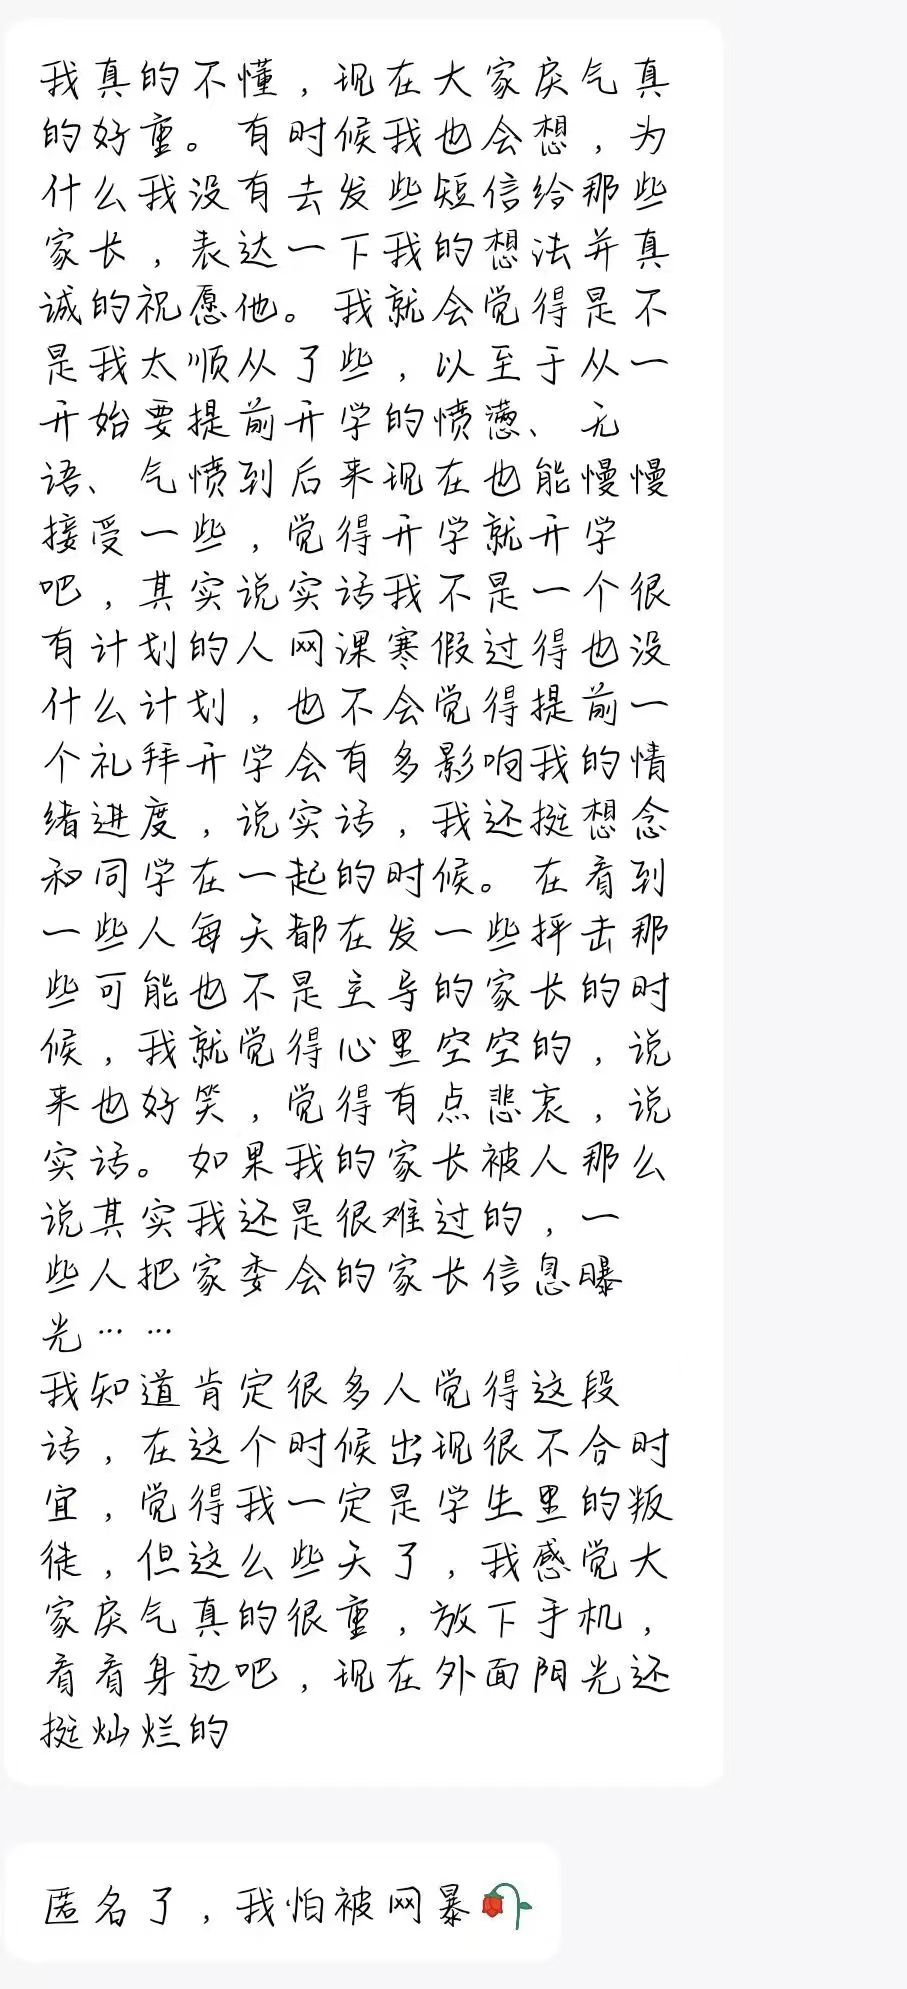 我真的不懂，现在大家戾气真
的好重。有时候我也会想，为
什么我没有去发些短信给那些
家长，表达一下我的想法并真
诚的祝愿他。我就会觉得是不
是我太顺从了些，以至于从一
开始要提前开学的愤懑、无
语、气愤到后来现在也能慢慢
接受一些，觉得开学就开学
吧，其实说实话我不是一个很
有计划的人网课寒假过得也没
什么计划，也不会觉得提前一
个礼拜开学会有多影响我的情
绪进度，说实话，我还挺想念
和同学在一起的时候。在看到
一些人每天都在发一些抨击那
些可能也不是主导的家长的时
候，我就觉得心里空空的，说
来也好笑，觉得有点悲哀，说
实话。如果我的家长被人那么
说其实我还是很难过的，一
些人把家委会的家长信息曝
光……
我知道肯定很多人觉得这段
话，在这个时候出现很不合时
宜，觉得我一定是学生里的叛
徒，但这么些天了，我感觉大
家戾气真的很重，放下手机，
看看身边吧，现在外面阳光还
挺灿烂的
匿名了，我怕被网暴🥀